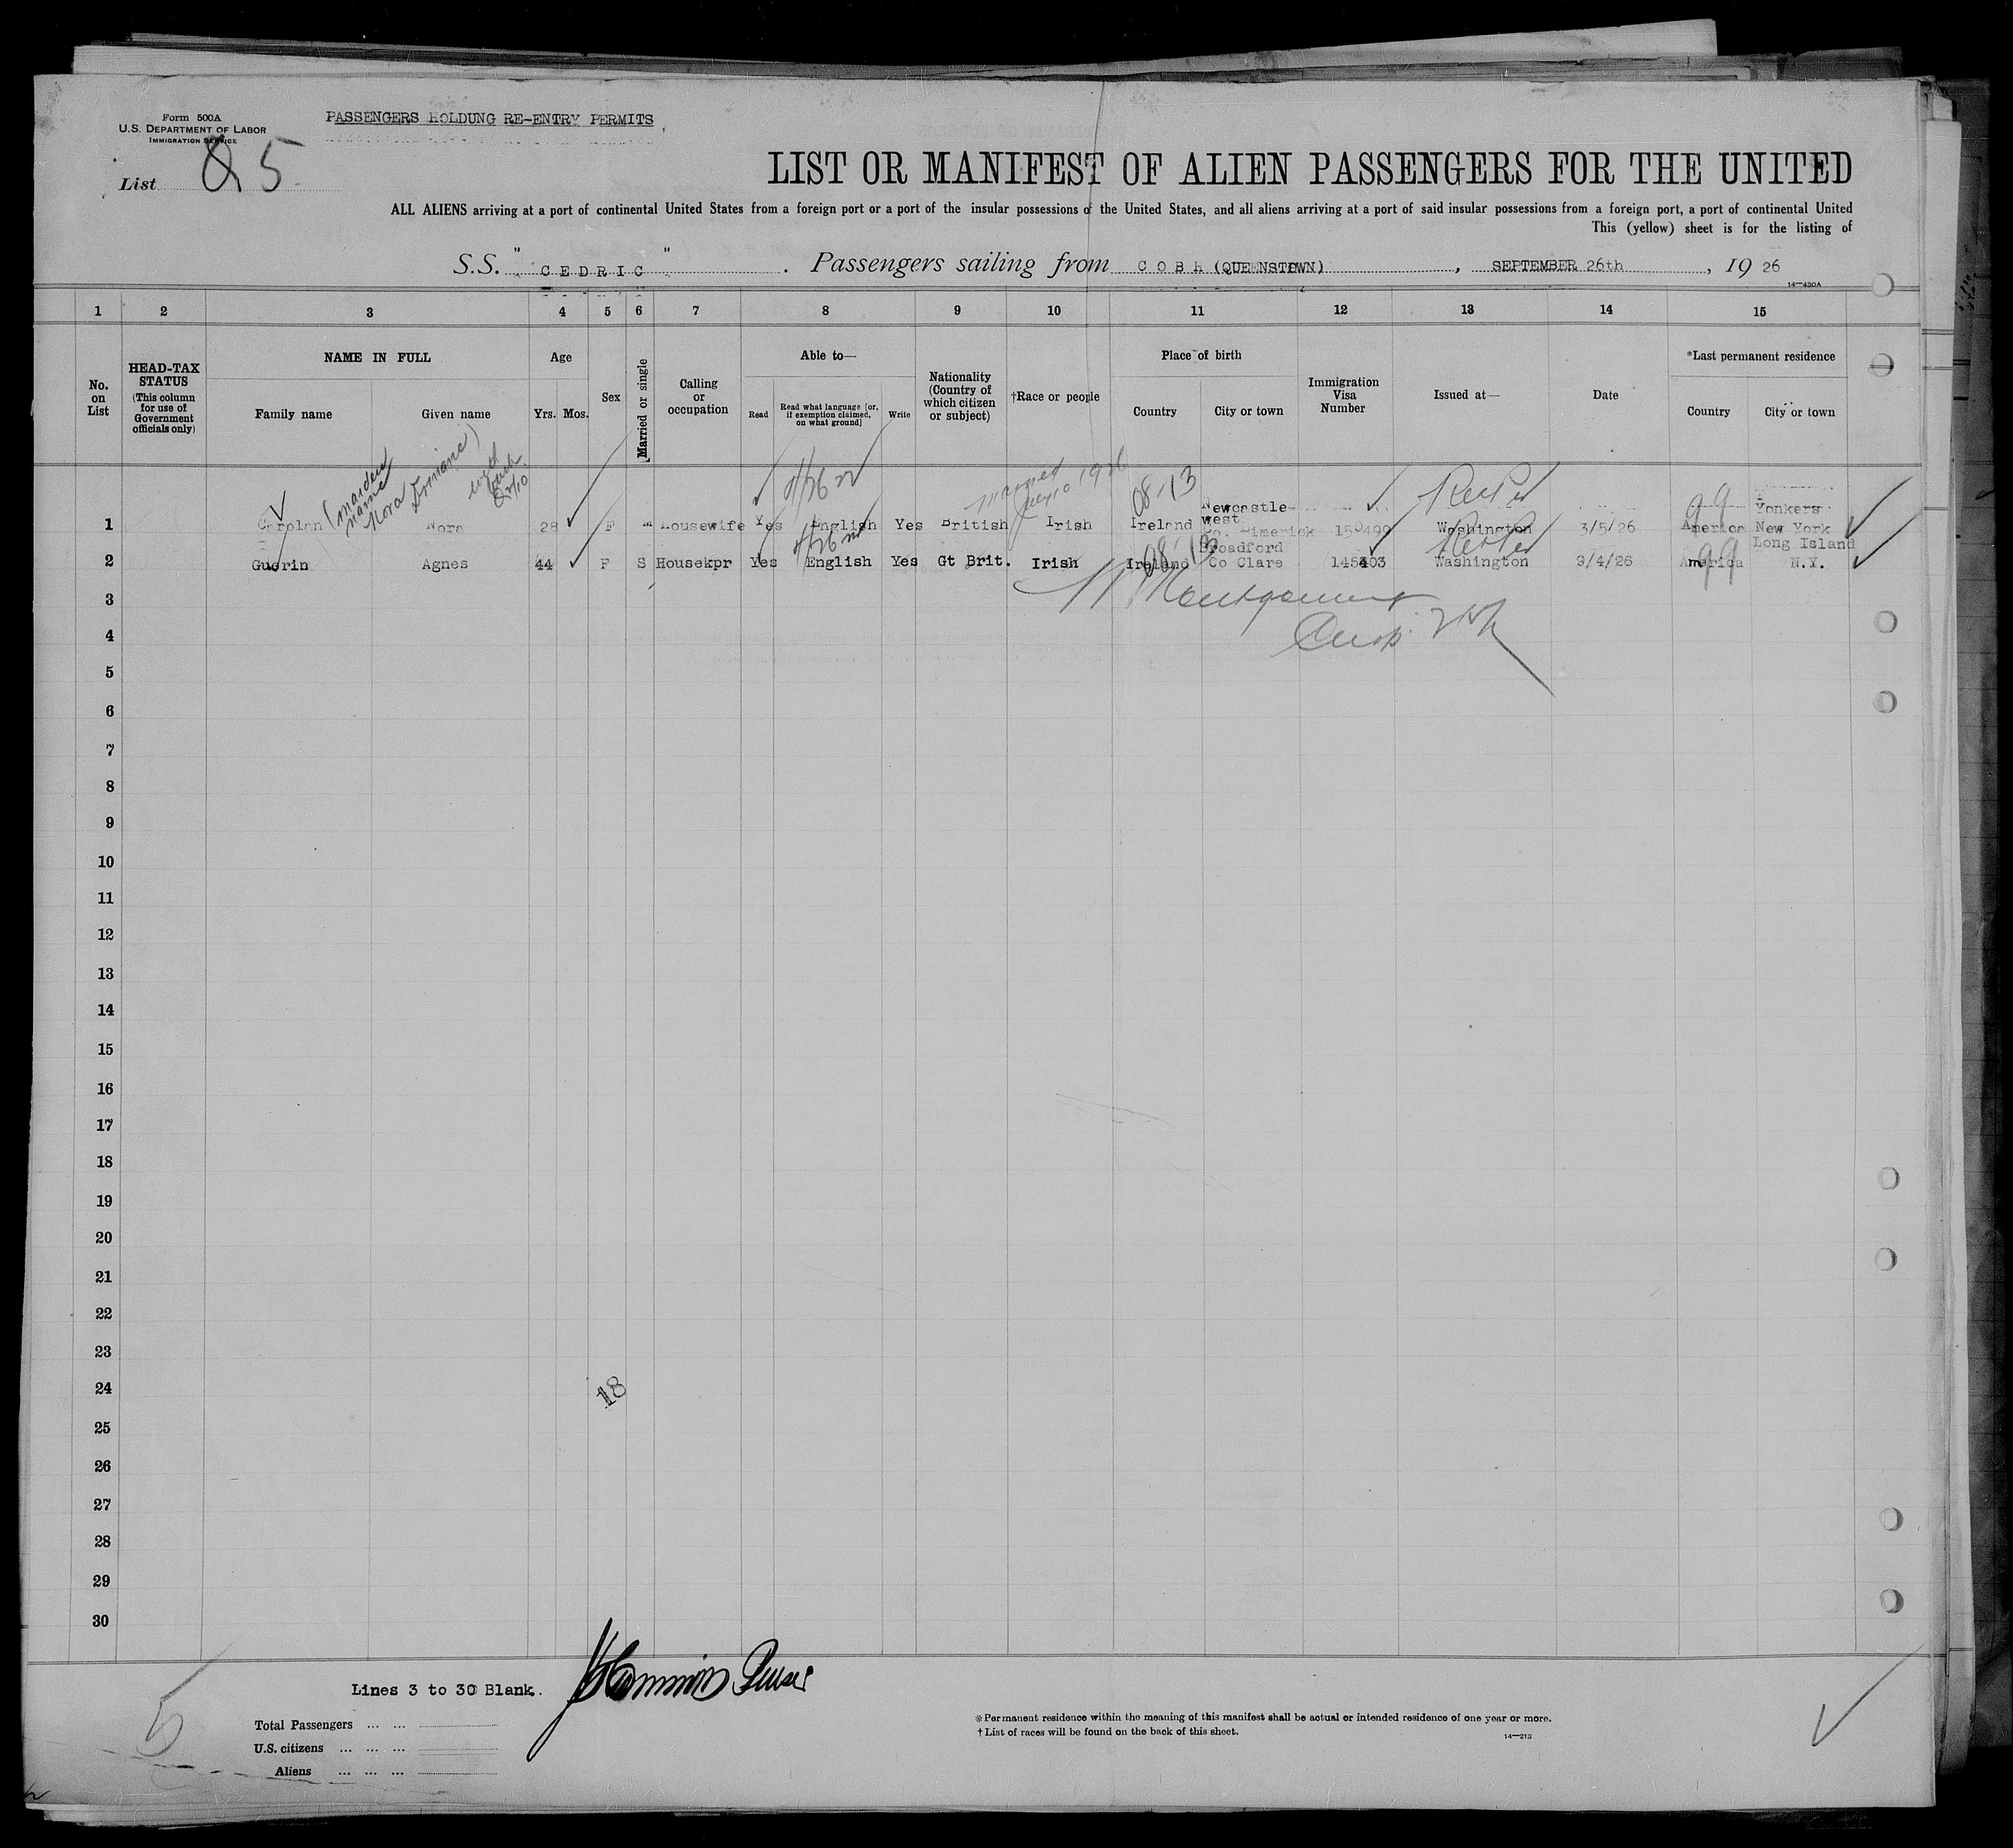 Form 500A
U.S. DEPARTMENT OF LABOR
IMMIGRATION SERVICE
PASSENGERS HOLDUNG RE-ENTRY PERMITS
List 85
LIST OR MANIFEST OF ALIEN PASSENGERS FOR THE UNITED
ALL ALIENS arriving at a port of continental United States from a foreign port or a port of the insular possessions of the United States, and all aliens arriving at a port of said insular possessions from a foreign port, a port of continental United
This (yellow) sheet is for the listing of
S.S. " CEDRIC " . Passengers sailing from COBH (QUEENSTOWN) , SEPTEMBER 26th , 19 26
14—430A
1 2 3 4 5 6 7 8 9 10 11 12 13 14 15
No. on List
HEAD-TAX STATUS
(This column for use of Government officials only)
NAME IN FULL
Family name Given name
Age
Yrs. Mos.
Sex
Married or single
Calling or occupation
Able to—
Read
Read what language [or, if exemption claimed, on what ground]
Write
Nationality (Country of which citizen or subject)
†Race or people
Place of birth
Country City or town
Immigration Visa Number
Issued at—
Date
*Last permanent residence
Country City or town
(maiden name Nora
married 1926
08-13
Newcastle-
west
Yonkers
1 Carolan Nora 28 F M Housewife Yes English Yes British Irish Ireland Co. Limerick 150499 Washington 3/5/26 America New York
99
08-13
Broadford
Long Island
2 Guerin Agnes 44 F S Housekpr Yes English Yes Gt Brit. Irish Ireland Co Clare 145403 Washington 9/4/26 America N.Y.
99
Montgomery
3
4
5
6
7
8
9
10
11
12
13
14
15
16
17
18
19
20
21
22
23
24
18
25
26
27
28
29
30
Lines 3 to 30 Blank.
Purser
5
Total Passengers ... ...
U.S. citizens ... ... ...
Aliens ... ... ...
*Permanent residence within the meaning of this manifest shall be actual or intended residence of one year or more.
†List of races will be found on the back of this sheet.
14—213